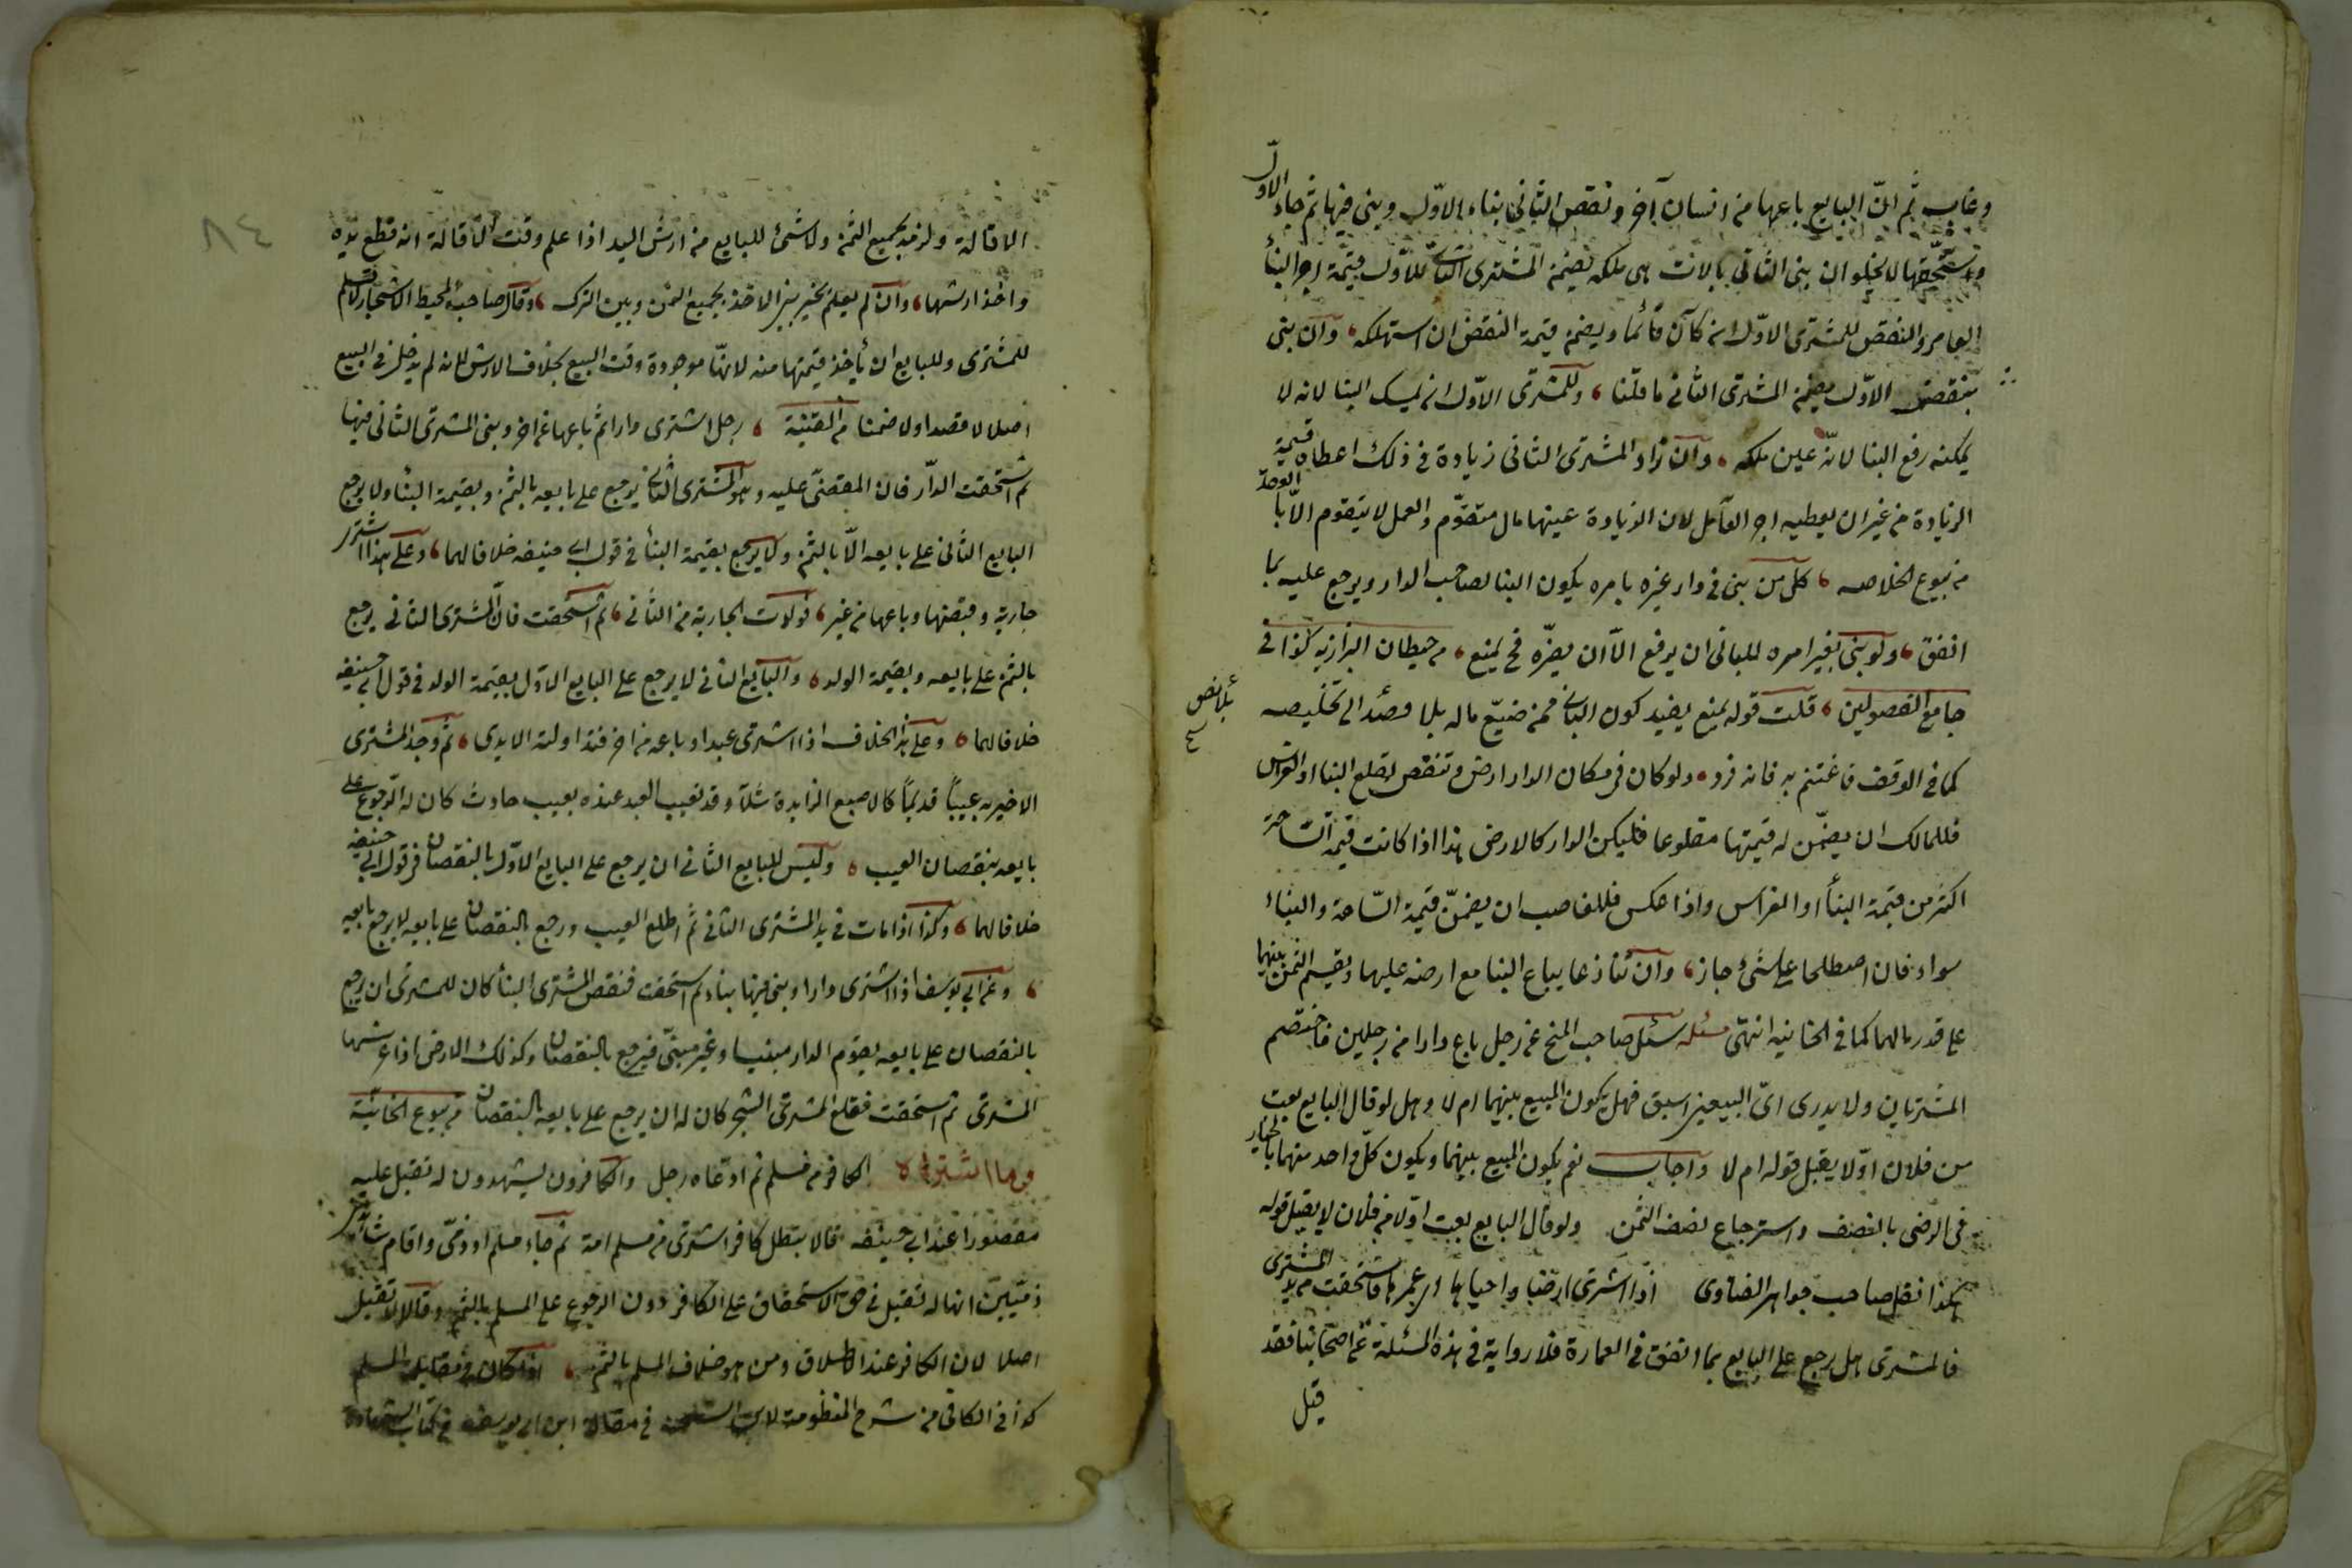 وغاب ثم ان البايع باعها من انسان آخر ونقض الثانى بناء الاول وبنى فيها ثم جاء الاول
واستحقها لا يخلو ان بنى الثانى بالات هى ملكه يضمن المشترى الثانى للاول قيمة اجر البنأ
العامر والنقض للمشترى الاول ان كان قائما ويضمن قيمة النقض ان استهلكه وان بنى
بنقض الاول يضمن المشترى الثانى ما قلنا وللمشترى الاول ان يمسك البنا لانه لا
يمكنه رفع البنا لانه عين ملكه وان زاد المشترى الثانى زيادة فى ذلك اعطاه قيمة
الزيادة من غير ان يعطيه اجر العامل لان الزيادة عينها مال متقوم والعمل لا يتقوم الا بالعقد
من بيوع الخلاصه كل من بنى فى دار غيره بامره يكون البنا لصاحب الدار ويرجع عليه بما
انفق ولو بنى بغير امره للبانى ان يرفع الا ان يضره فح يمنع من حيطان البزازيه كذا فى
جامع الفصولين قلت قوله يمنع يفيد كون البانى ممن ضيع ماله بلا وصئد الى تخليصه
بلا نص
كما فى الوقف فاغتنم به فانه فرد ولو كان فى مكان الدار ارض وتنقص بقلع البنا او الغراس
فللمالك ان يضمن له قيمتها مقلوعا فليكن الدار كالارض هذا اذا كانت قيمة الساحة
اكثر من قيمة البنأ او الغراس واذا عكس فللغاصب ان يضمن قيمة الساحة والبناء
سواء فان اصطلحا على شئ جاز وان تنازعا يباع البنا مع ارضه عليهما ويقسم الثمن بينهما
على قدر مالهما كما فى الخانيه انتهى مسئله سئل صاحب المنح عن رجل باع دارا من رجلين فاختصم
المشتريان ولا يدرى اى البيعين اسبق فهل يكون المبيع بينهما ام لا وهل لو قال البايع بعت
من فلان اولا يقبل قوله ام لا واجاب نعم يكون المبيع بينهما ويكون كل واحد منهما بالخيار
فى الرضى بالنصف واسترجاع نصف الثمن ولو قال البايع بعت اولا من فلان لا يقبل قوله
هكذا نقل صاحب جواهر الفتاوى اذا اشترى ارضا واحياها اى عمرها فاستحقت من يد المشترى
فالمشترى هل يرجع على البايع بما انفق فى العمارة فلا رواية فى هذه المسئلة عن اصحابنا فقد
قيل
٨٤
الاقالة ولزمه بجميع الثمن ولا شئ للبايع من ارش اليد اذا علم وقت الاقالة انه قطع يده
واخذ ارشها وان لم يعلم يخير بين الاخذ بجميع الثمن وبين الترك وقال صاحب المحيط الاشجار لا تسلم
للمشترى وللبايع ان يأخذ قيمتها منه لانها موجودة وقت البيع بخلاف الارش لانه لم يدخل فى البيع
اصلا لا قصدا ولا ضمنا من القنية رجل اشترى دارا ثم باعها من اخر وبنى المشترى الثانى فيها
ثم استحقت الدار فان المقضى عليه وهو المشترى الثانى يرجع على بايعه بالثمن وبقيمة البنأ ولا يرجع
البايع الثانى على بايعه الا بالثمن ولا يرجع بقيمة البنأ فى قول ابى حنيفه خلافا لهما وعلى هذا اشترى
جارية وقبضها وباعها من غير فولدت الجارية من الثانى ثم استحقت فان المشترى الثانى يرجع
بالثمن على بايعه وبقيمة الولد والبايع الثانى لا يرجع على البايع الاول بقيمة الولد فى قول ابى حنيفه
خلافا لهما وعلى هذا الخلاف اذا اشترى عبدا وباعه من اخر فتداولته الايدى ثم وجد المشترى
الاخير به عيبا قديما كالاصبع الزايدة مثلا وقد تعيب العبد عنده بعيب حادث كان له الرجوع على
بايعه بنقصان العيب وليس للبايع الثانى ان يرجع على البايع الاول بالنقصان فى قول ابى حنيفه
خلافا لهما وكذا اذا مات فى يد المشترى الثانى ثم اطلع العيب ورجع بالنقصان على بايعه لا يرجع بايعه
وعن ابى يوسف اذا اشترى دارا وبنى فيها بناء ثم استحقت فنقض المشترى البنأ كان للمشترى ان يرجع
بالنقصان على بايعه يقوم الدار مبنيا وغير مبنى فيرجع بالنقصان وكذلك الارض اذا غرسها
المشترى ثم استحقت فقلع المشترى الشجر كان له ان يرجع على بايعه بالنقصان من بيوع الخانية
وما اشتراه الكافر من مسلم ثم ادعاه رجل والكافرون يشهدون له تقبل عليه
مقصورا عند ابى حنيفه قالا بتطل كافر اشترى من مسلم امة ثم جاء مسلم او ذمى واقام شاهدين
ذميين انها له تقبل فى حق الاستحقاق على الكافر دون الرجوع على المسلم بالثمن وقالا لا تقبل
اصلا لان الكافر عند الاطلاق ومن هو خلاف المسلم بالثمن
كذا فى الكافى من شرح المنظومة لابن الشحنه فى مقالة ابى يوسف فى كتاب الشهادة